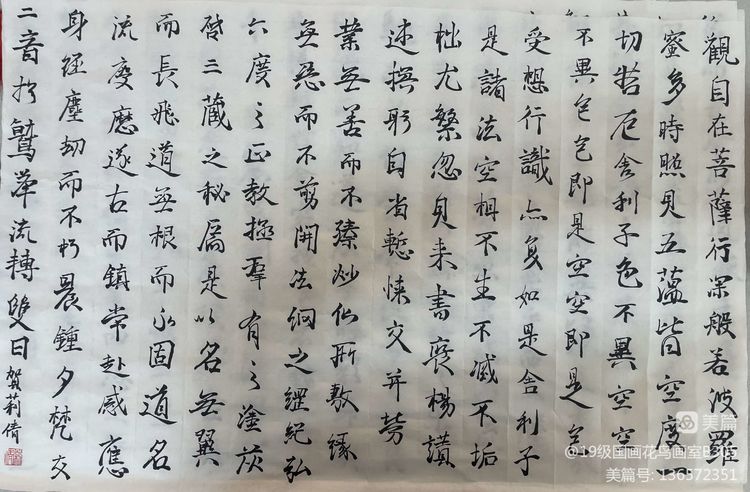 觀自在菩薩行深般若波羅
蜜多時照見五蘊皆空度一
切苦厄舍利子色不異空空
不異色色即是空空即是色
受想行識亦復如是舍利子
是諸法空相不生不滅不垢
拙尤繁忽見来書褒揚讃
述撫躬自省慙悚交并勞
業無善而不臻妙化所敷緣
無惡而不剪開法網之綱紀弘
六度之正教拯群有之塗炭
啓三藏之秘扃是以名無翼
而長飛道無根而永固道名
流慶歷遂古而鎮常赴感應
身經塵劫而不朽晨鐘夕梵交
二音於鷲峯流轉雙日
賀莉倩
美篇
@19级国画花鸟画室B305
美篇号: 136572351